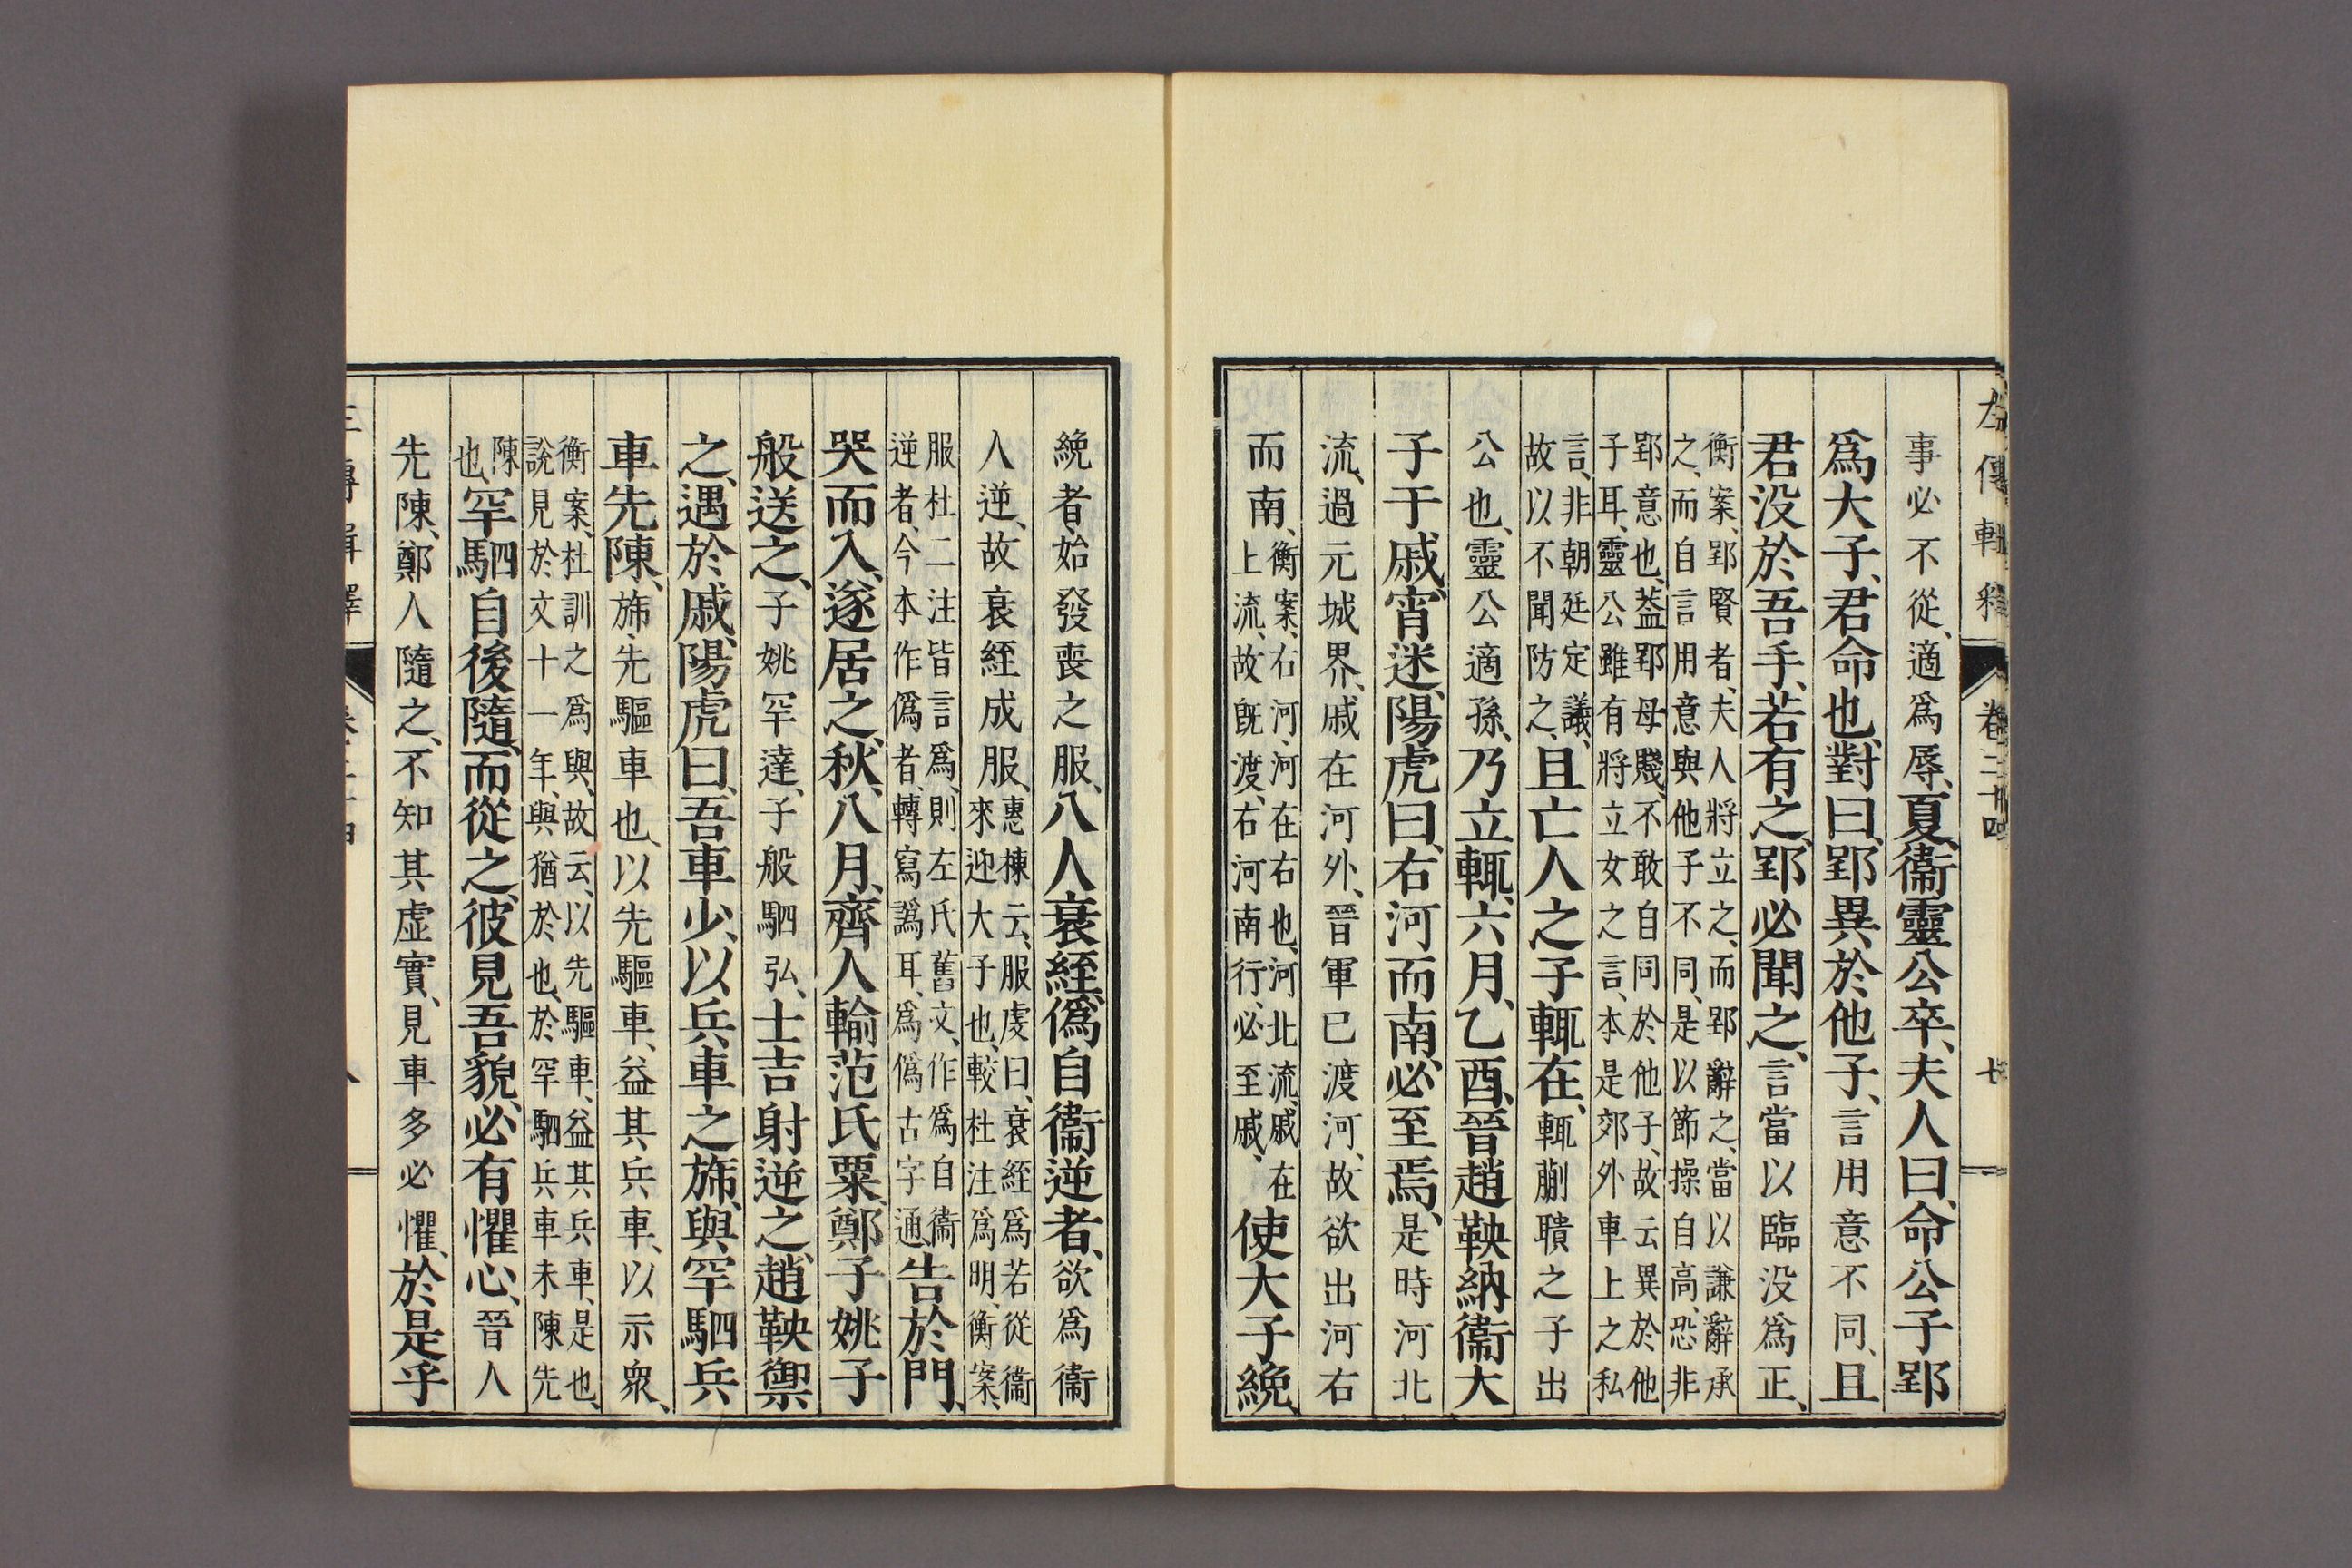 左傳輯釋 卷二十四 七
事必不從、適爲辱、夏、衞靈公卒、夫人曰、命公子郢
爲大子、君命也、對曰、郢異於他子、言用意不同、且
君没於吾手、若有之、郢必聞之、言當以臨没爲正、
衡案、郢賢者、夫人將立之、而郢辭之、當以謙辭承
之、而自言用意與他子不同、是以節操自高、恐非
郢意也、葢郢母賤、不敢自同於他子、故云異於他
子耳、靈公雖有將立女之言、本是郊外車上之私
言、非朝廷定議、
故以不聞防之、且亡人之子輒在、輒蒯聵之子出
公也、靈公適孫、乃立輒、六月、乙酉、晉趙鞅納衞大
子于戚、宵迷、陽虎曰、右河而南、必至焉、是時河北
流、過元城界、戚在河外、晉軍已渡河、故欲出河右
而南、衡案、右河、河在右也、河北流、戚在
上流、故既渡、右河南行、必至戚、使大子絻、
絻者、始發喪之服、八人衰絰、僞自衞逆者、欲爲衞
人逆、故衰絰成服、惠棟云、服虔曰、衰絰爲若從衞
來迎大子也、較杜注爲明、衡案、
服杜二注皆言爲、則左氏舊文、作爲自衞
逆者、今本作僞者、轉寫譌耳、爲僞古字通、告於門、
哭而入、遂居之、秋、八月、齊人輸范氏粟、鄭子姚子
般送之、子姚罕達、子般駟弘、士吉射逆之、趙鞅禦
之、遇於戚、陽虎曰、吾車少、以兵車之斾、與罕駟兵
車先陳、斾、先驅車也、以先驅車、益其兵車、以示衆、
衡案、杜訓之爲與、故云、以先驅車、益其兵車、是也、
說見於文十一年、與猶於也、於罕駟兵車未陳先
陳
也、罕駟自後隨、而從之、彼見吾貌、必有懼心、晉人
先陳、鄭人隨之、不知其虛實、見車多必懼、於是乎